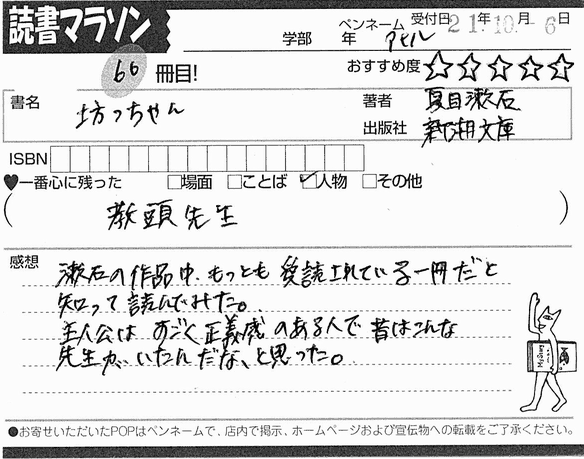 読書マラソン
学部 年 ペンネーム アセル 受付日 21年10月-6日
66 冊目!
おすすめ度 ☆☆☆☆☆
書名 坊っちゃん
著者 夏目漱石
出版社 新潮文庫
ISBN
♥一番心に残った □場面 □ことば ☑人物 □その他
( 教頭先生 )
感想 漱石の作品中、もっとも愛読されている一冊だと
知って読んでみた。
主人公は すごく正義感のある人で昔はこんな
先生が、いたんだな、と思った。
●お寄せいただいたPOPはペンネームで、店内で掲示、ホームページおよび宣伝物への転載をご了承ください。